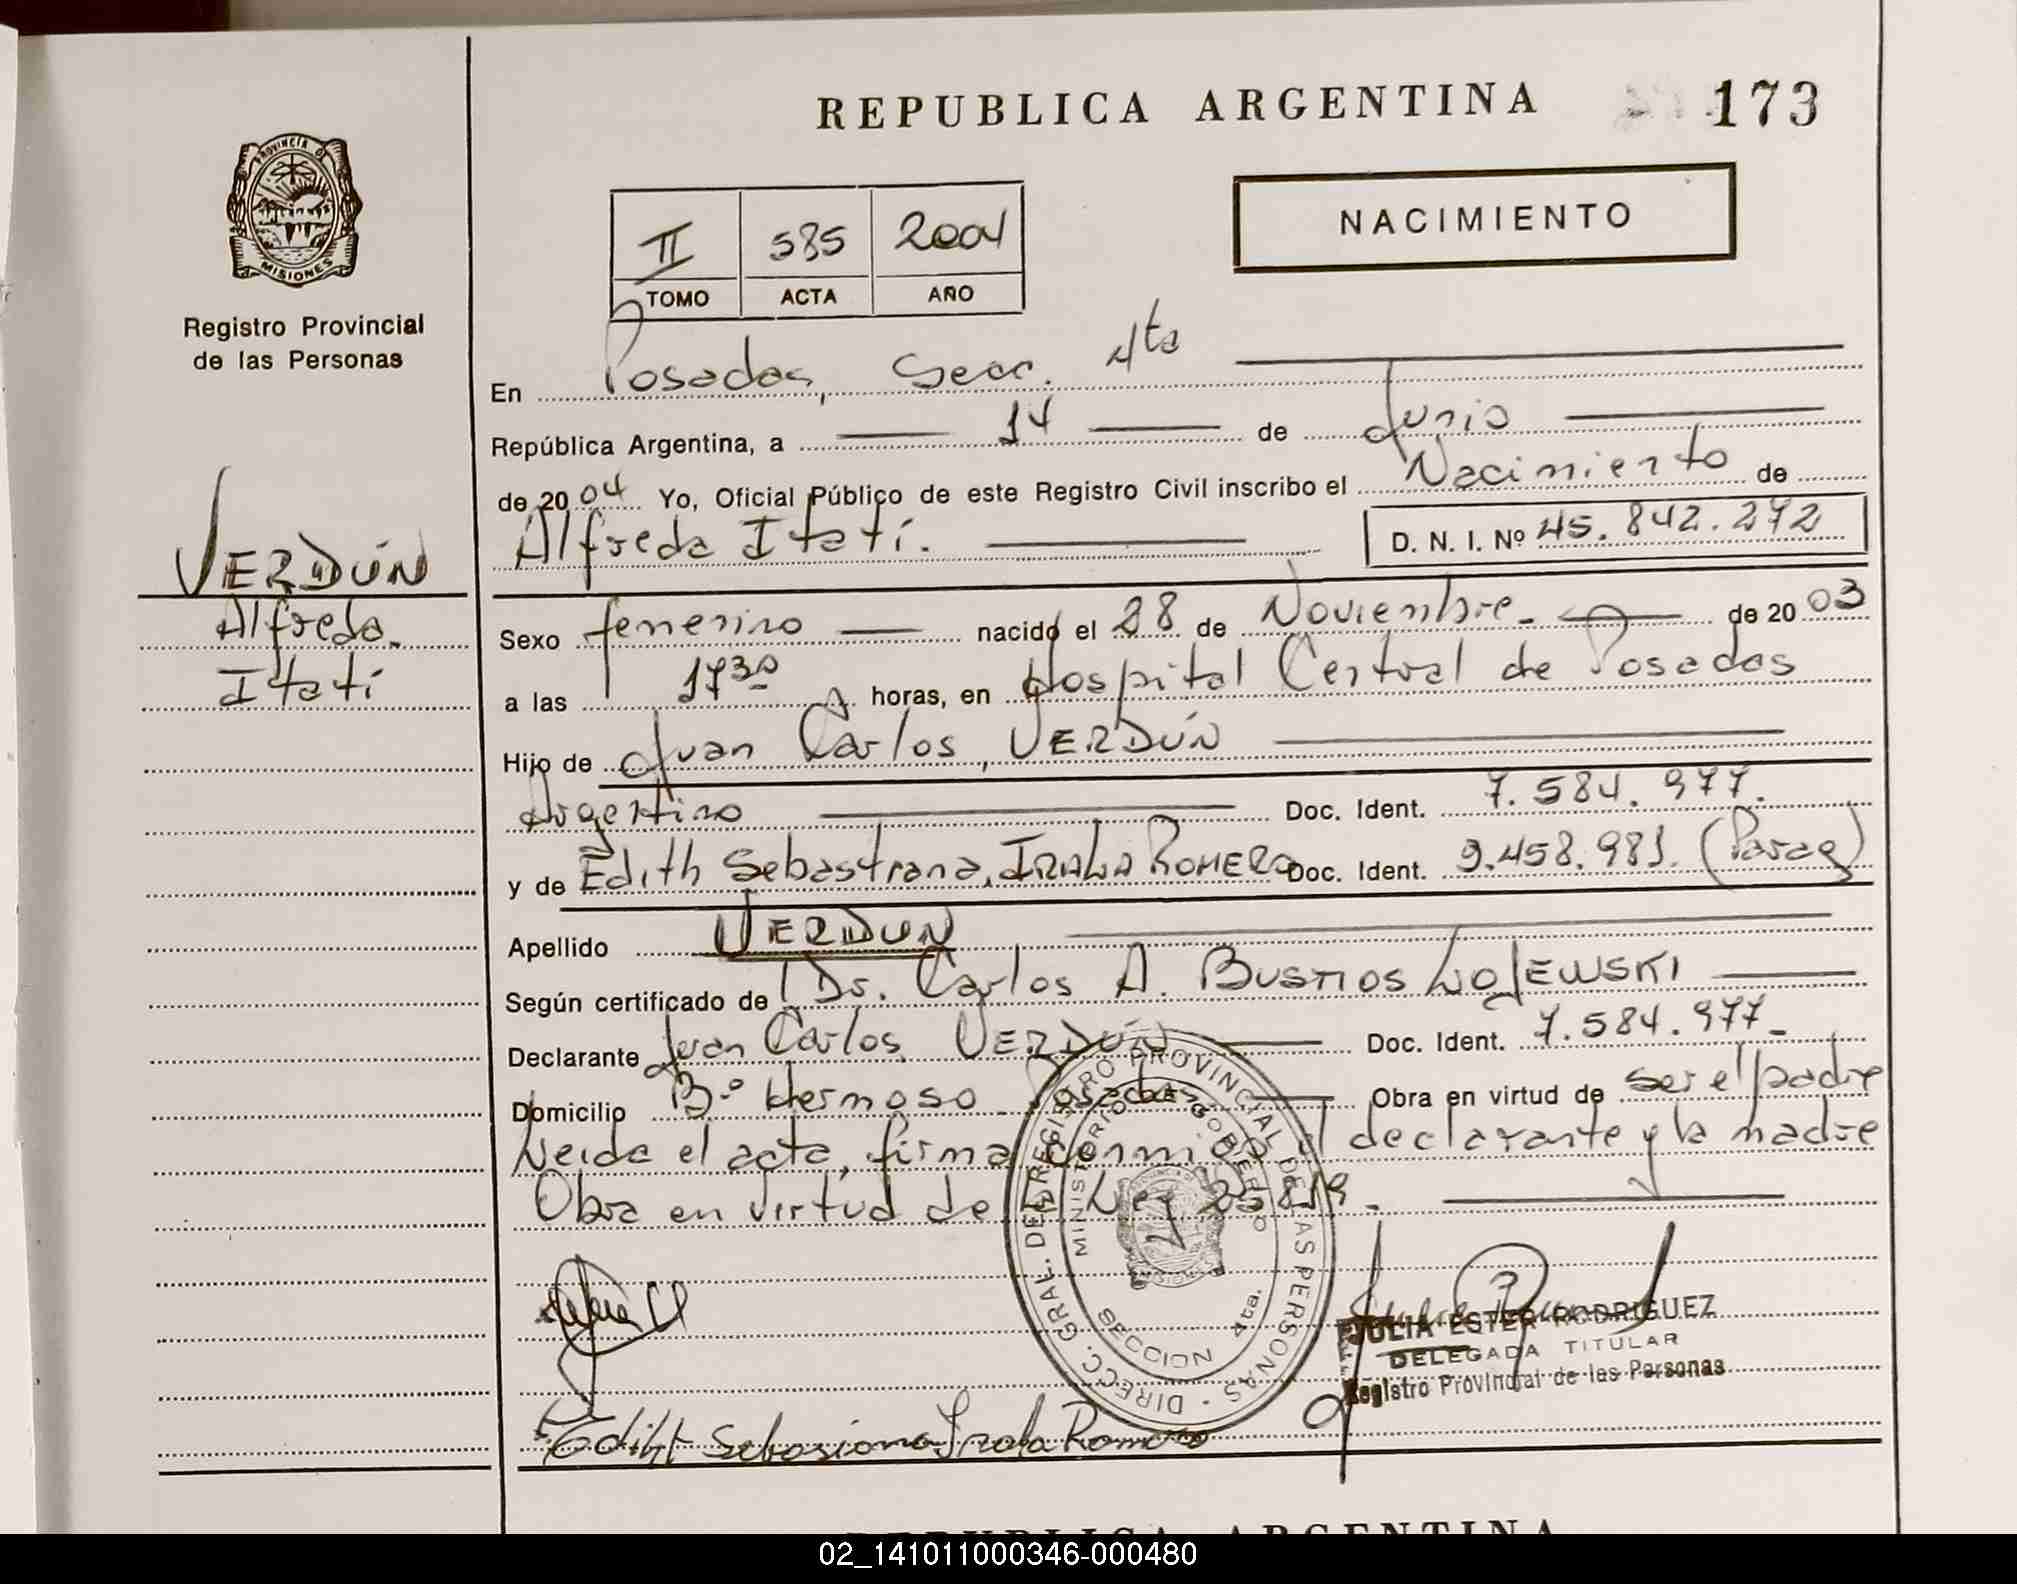 REPUBLICA ARGENTINA 173
PROVINCIA DE
MISIONES
Registro Provincial
de las Personas
NACIMIENTO
II 585 2004
TOMO ACTA AÑO
En Posadas, Secc. 4ta
República Argentina, a 14 de Junio
de 2004 Yo, Oficial Público de este Registro Civil inscribo el Nacimiento de
Alfreda Itatí. D. N. I. Nº 45.842.272
VERDÚN
Alfreda
Itatí
Sexo femenino nacido el 28 de Noviembre de 2003
a las 17 30 horas, en Hospital Central de Posadas
Hijo de Juan Carlos, VERDÚN
Argentino Doc. Ident. 7.584.977.
y de Edith Sebastiana, IRALA ROMERO Doc. Ident. 9.458.981. (Parag)
Apellido VERDUN
Según certificado de Dr. Carlos A. BUSTIOS LOJEWSKI
Declarante Juan Carlos VERDÚN Doc. Ident. 7.584.977-
Domicilio Bº Hermoso Posadas Obra en virtud de ser el padre
Leida el acta, firma conmigo el declarante y la madre
Obra en virtud de la Ley 25819.
DIRECC. GRAL. DEL REGISTRO PROVINCIAL DE LAS PERSONAS
MINISTERIO DE GOBIERNO
SECCION 4ta.
JULIA ESTER RODRIGUEZ
DELEGADA TITULAR
Registro Provincial de las Personas
Edith Sebasiana Irala Romero
REPUBLICA ARGENTINA
02_141011000346-000480